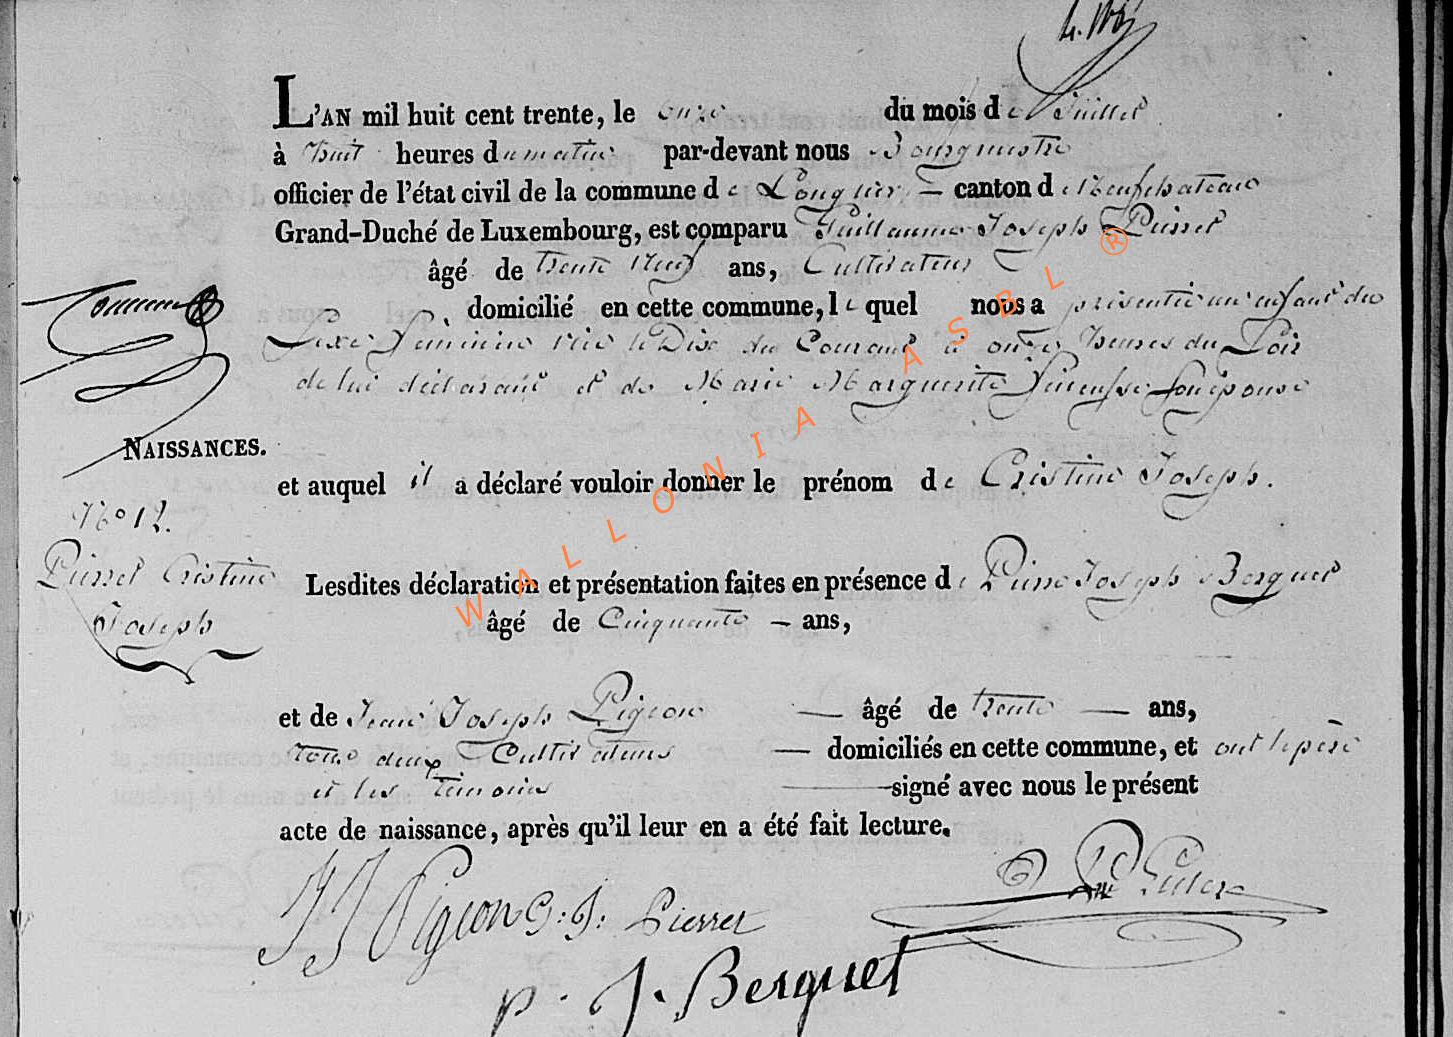 L'AN mil huit cent trente, le onze du mois de Juillet
à huit heures du matin par-devant nous Bourgmestre
officier de l'état civil de la commune de Longlier canton de Neufchateau
Grand-Duché de Luxembourg, est comparu Guillaume Joseph Pierret
âgé de trente neuf ans, Cultivateur
domicilié en cette commune, le quel nous a présenté un enfant du
Sexe féminin née le Dix du Courant à onze heures du Soir
de lui déclarant et de Marie Marguerite son épouse
NAISSANCES.
et auquel il a déclaré vouloir donner le prénom de Cristine Joseph.
N° 12.
Pierret Cristine
Joseph
Lesdites déclaration et présentation faites en présence de Pierre Joseph Berquet
âgé de Cinquante ans,
et de Jean Joseph Pigeon âgé de trente ans,
tous deux Cultivateurs domiciliés en cette commune, et ont le père
et les témoins signé avec nous le présent
acte de naissance, après qu'il leur en a été fait lecture.
J J Pigeon G: J: Pierret
p. J. Berquet
WALLONIA ASBL ®